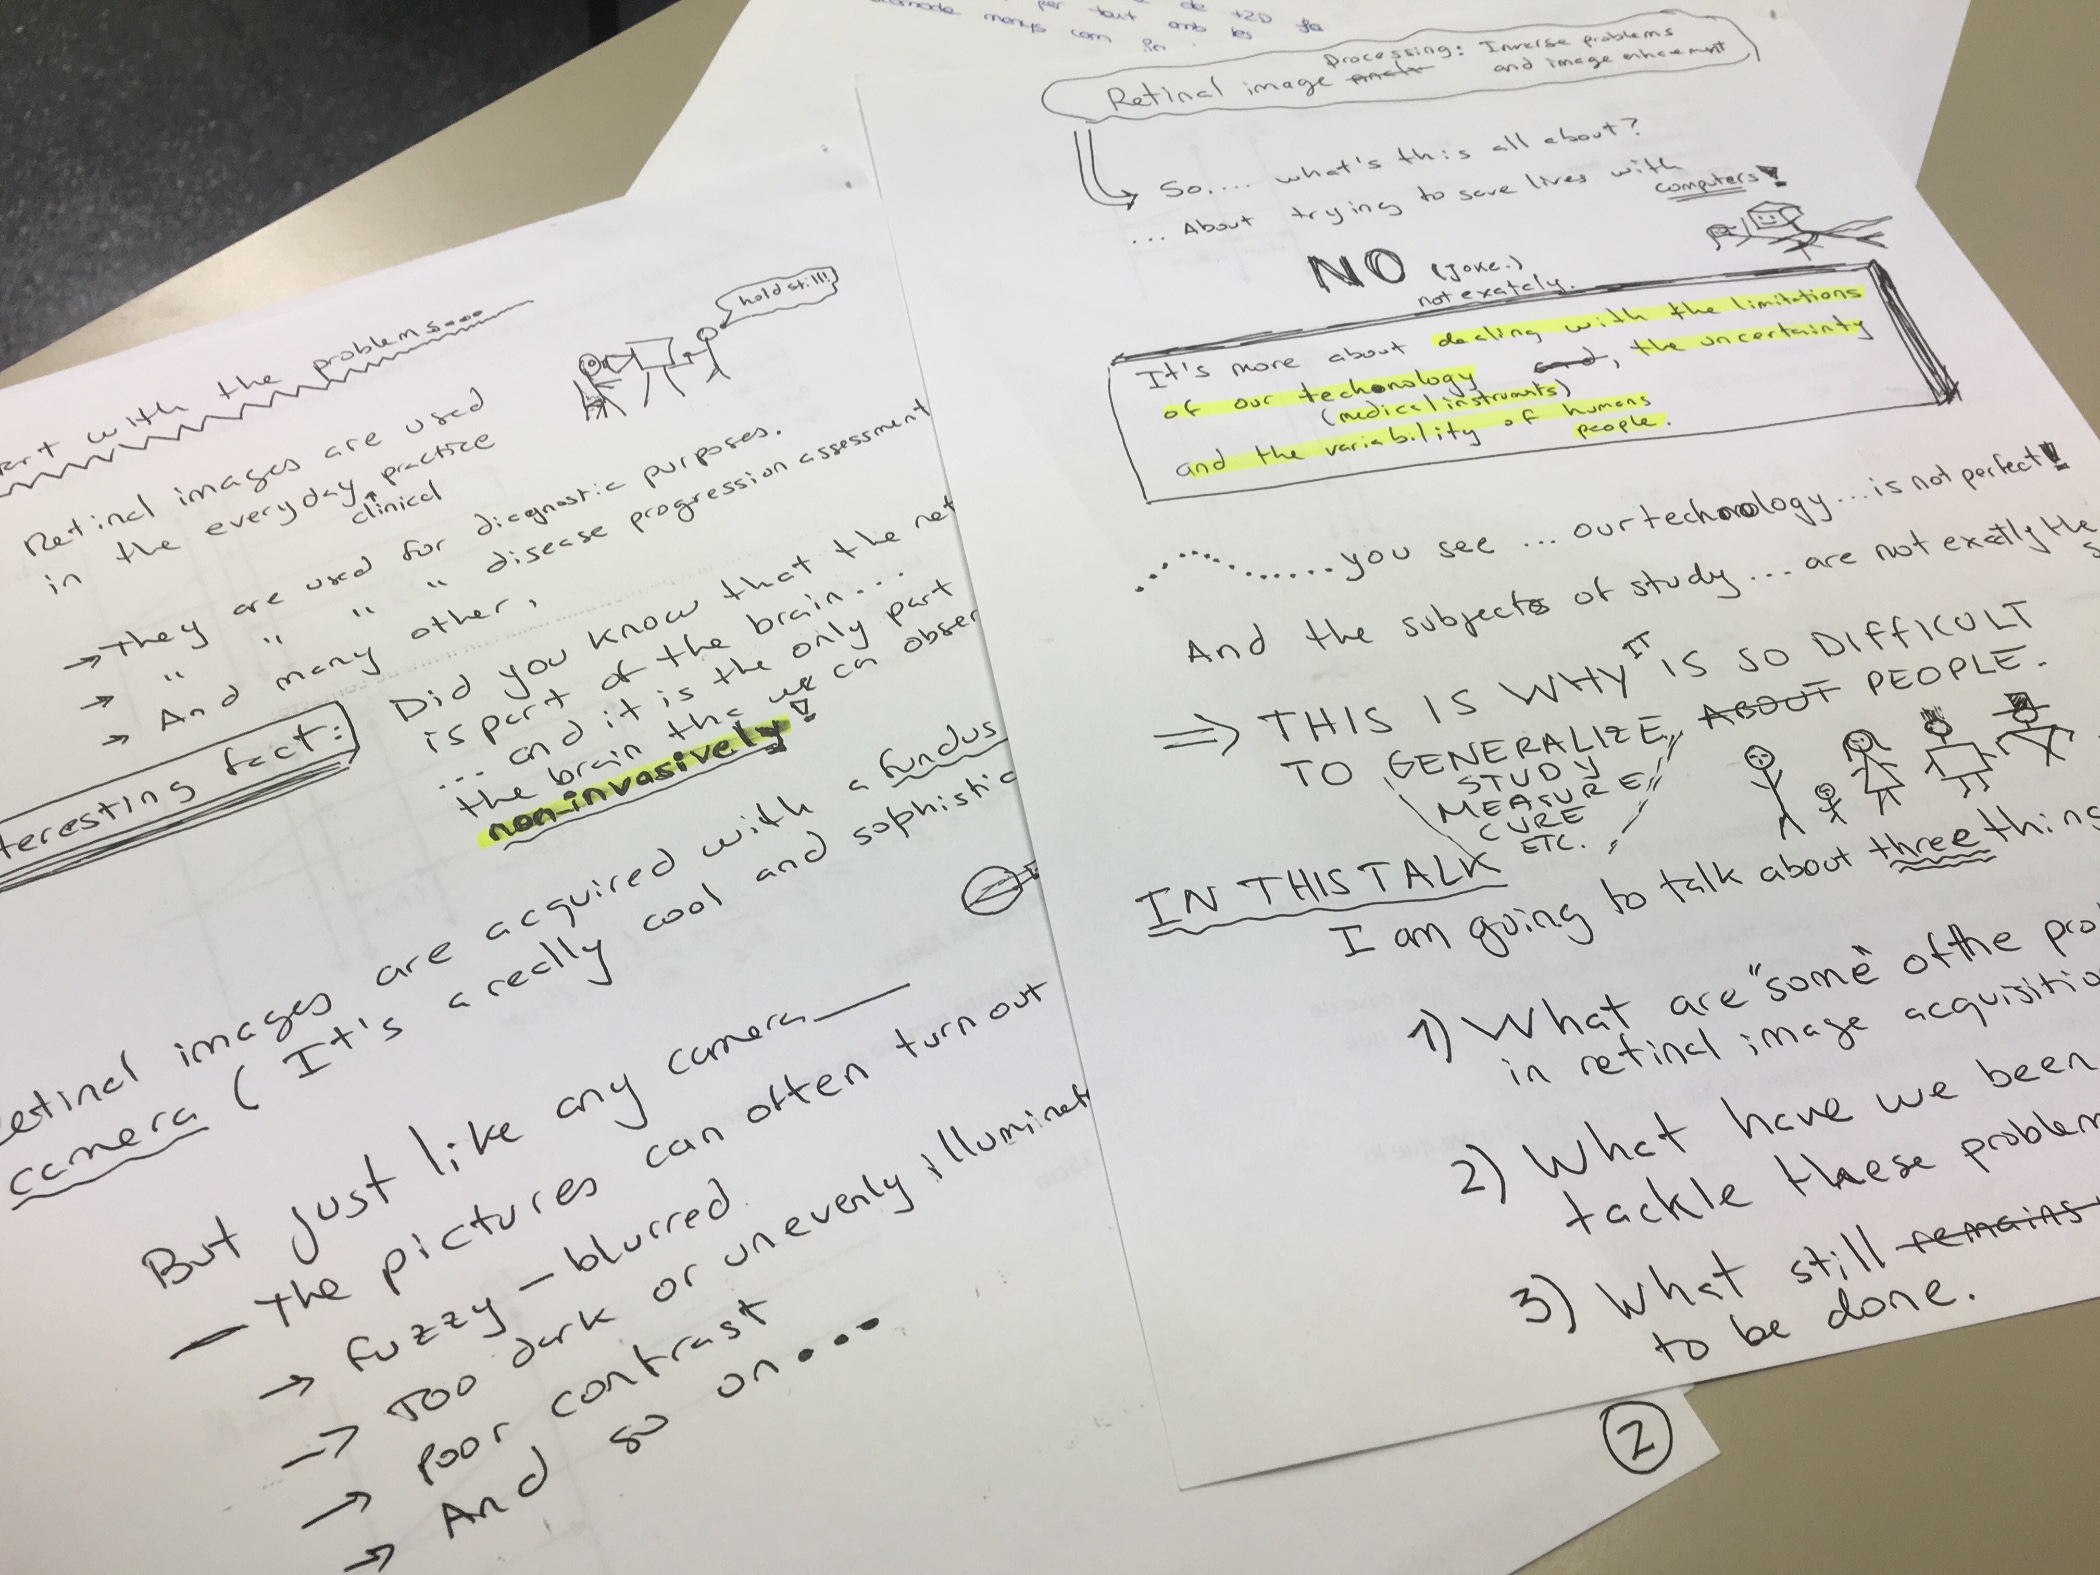 de t2D
per tant amb les
menys com
Processing: Inverse problems
and image enhacement
Retinal image
So.... what's this all about?
... About trying to save lives with
computers!
NO (Joke.)
not exately.
It's more about dealing with the limitations
of our techonology and, the uncertainty
(medical instruments)
and the variability of humans
people.
.........you see ... our techonology...is not perfect!
And the subjects of study... are not exactly the
⇒ THIS IS WHY IT IS SO DIFFICULT
TO GENERALIZE, ABOUT PEOPLE.
STUDY
MEASURE
CURE
ETC.
IN THIS TALK
I am going to talk about three thing
1) What are "some" of the pro
in retinal image acquisitio
2) What have we been
tackle these problem
3) What still remains
to be done.
2
art with the problems...
hold still!!
Retinal images are used
in the everyday practice
clinical
→ They are used for diagnostic purposes.
→ " " " " disease progression assessment
→ And many other,
teresting fact:
Did you know that the ret
is part of the brain...
... and it is the only part
the brain the we can obser
non-invasively!
etinal images are acquired with a fundus
camera (It's a really cool and sophistic
But just like any camera
– The pictures can often turn out
→ fuzzy – blurred.
→ Too dark or unevenly illuminat
→ Poor contrast
→ And so on...